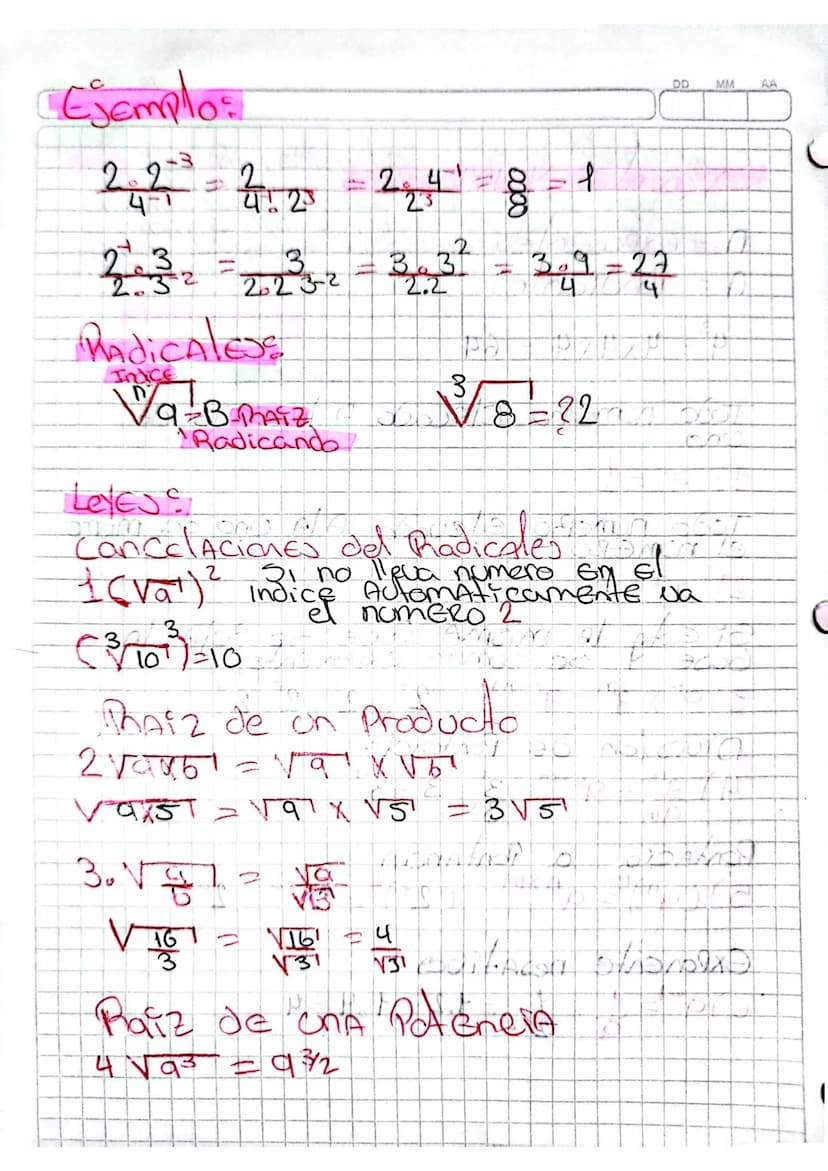 DD MM AA
Ejemplo:
2.2⁻³/4⁻¹ = 2/4⁻¹.2³ = 2.4⁻¹/2³ = 8/8 = 1
2⁻¹.3/2.3⁻² = 3/2.2 3⁻² = 3.3²/2.2 = 3.9/4 = 27/4
Radicales:
Indice
ⁿ√a = B Raiz ³√8 = ?2
Radicando
Leyes:
Cancelaciones del Radicales
1 (√a)² Si no lleva numero en el
indice automáticamente va
el numero 2
(³√10³) = 10
Raíz de un Producto
2 √axb = √a x √b
√9x5 = √9 x √5 = 3√5
3. √a/b = √a/√B
√16/3 = √16/√3 = 4/√3
Raíz de una Potencia
4 √a³ = a 3/2